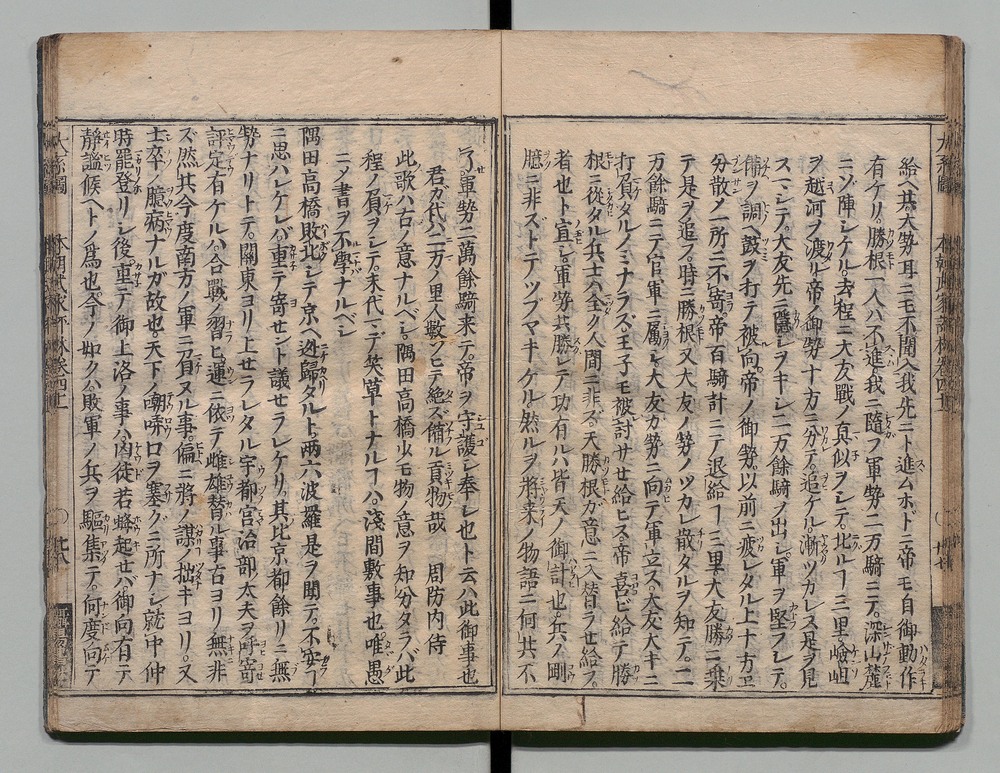 給ヘ𪜈大勢耳ニモ不聞入我先ニト進ムホドニ帝モ自御動作
有ケリ。勝根一人ハ不進我ニ隨フ軍勢二万騎ニテ。深山麓
ニゾ陣シケル。去程ニ大友戰ノ真似ヲシテ。北ルヿ三里嶮岨
ヲ越河ヲ渡ル帝ノ御勢十方ニ分テ。追ケレ𪜈漸ツカレス是ヲ見
スマシテ。大友先ニ隱レヲキシ二万餘騎ヲ出シ。軍ヲ堅フシテ。
備ヲ調ヘ鼓ヲ打テ被向。帝ノ御勢。以前ニ疲レタル上十方エ
分散ノ一所ニ不寄帝百騎計ニテ退給ヿ三里大友勝ニ乗
テ是ヲ追フ。時ニ勝根又大友ノ勢ノツカレ散タルヲ知テ。二
万餘騎ニテ官軍ニ属シ大友ガ勢ニ向テ軍立ス。大友大キニ
打負タルノミナラズ。王子モ被討サセ給ヒヌ。帝喜ビ給テ勝
根ニ從タル兵士ハ全ク人間ニ非ズ。天勝根ガ意ニ入替ラセ給フ。
者也ト宣シ。軍勢共勝レテ功有ルハ皆天ノ御計也。兵ノ剛
臆ニ非ズトテツブマキケル。然ルヲ將来ノ物語ニ何共不
了。軍勢二萬餘騎来テ。帝ヲ守護シ奉シ也ト云ハ此御事也
君ガ代ハ二万ノ里人數ソヒテ絶ズ備ル貢物哉 周防内侍
此歌ハ古ノ意ナルベシ。隅田高橋少モ物ノ意ヲ知ノ分タラバ此
程ノ負ヲシテ。末代マデ笑草トナルヿハ。淺間敷事也。唯愚
ニノ書ヲ不學ナルベシ
隅田高橋敗北シテ京ヘ迯歸タルト。兩六波羅是ヲ聞テ。不安ヿ
ニ思ハレケレバ重テ寄セント議セラレケリ。其比京都餘リニ無
勢ナリトテ。關東ヨリ上セラレタル宇都宮治部ノ太夫ヲ呼寄
評定有ケルハ。合戰ノ習ヒ運ニ依テ雌雄替ル事古ヨリ無非
ズ然𪜈今度南方ノ軍ニ負ヌル事。偏ニ將ノ謀ノ拙キヨリ。又
士卒ノ臆病ナルガ故也。天下ノ嘲哢口ヲ塞クニ所ナシ就中仲
時罷登リシ後。重テ御上洛ノ事ハ。凶徒若蜂起セバ御向有テ
靜謐候ヘトノ爲也今ノ如クハ敗軍ノ兵ヲ驅集テ。何度向テ
廿八